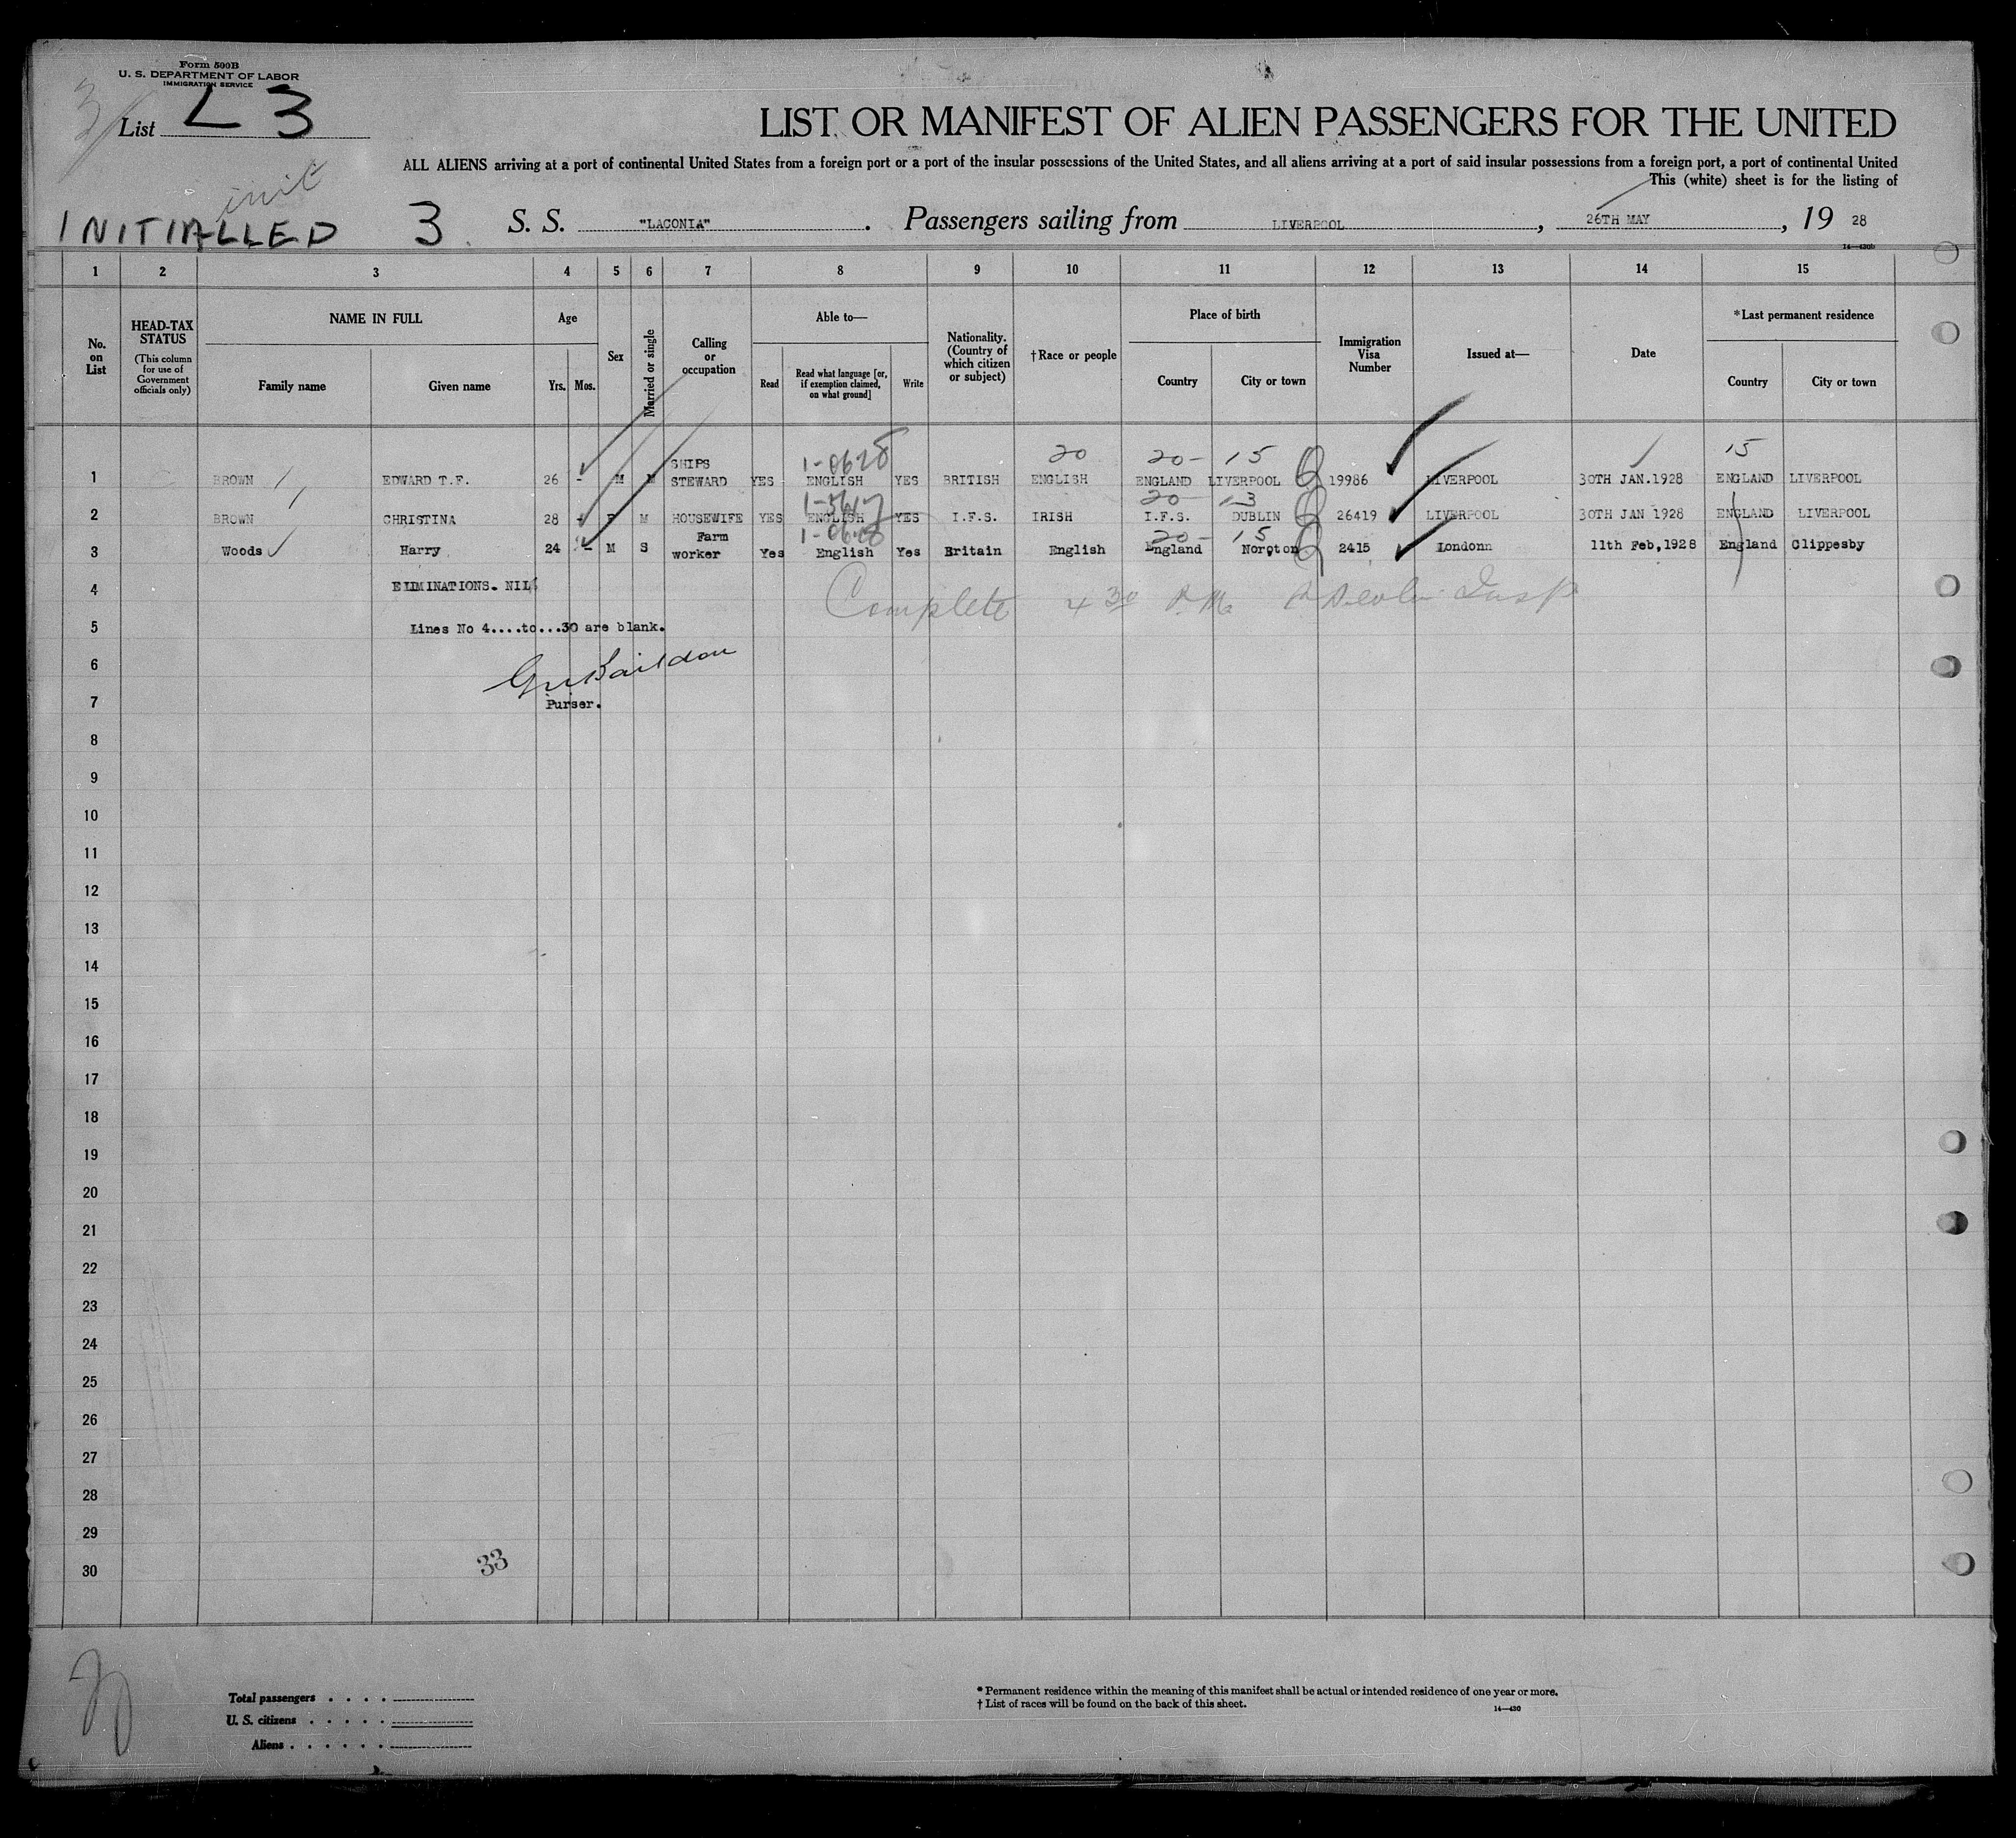 Form 500B
U. S. DEPARTMENT OF LABOR
IMMIGRATION SERVICE
3
List L 3
LIST OR MANIFEST OF ALIEN PASSENGERS FOR THE UNITED
ALL ALIENS arriving at a port of continental United States from a foreign port or a port of the insular possessions of the United States, and all aliens arriving at a port of said insular possessions from a foreign port, a port of continental United
This (white) sheet is for the listing of
init
INITIALLED 3 S. S. "LACONIA". Passengers sailing from LIVERPOOL, 26TH MAY, 19 28
14—430b
1 2 3 4 5 6 7 8 9 10 11 12 13 14 15
No. on List
HEAD-TAX STATUS
(This column for use of Government officials only)
NAME IN FULL
Family name Given name
Age
Yrs. Mos.
Sex
Married or single
Calling or occupation
Able to—
Read Read what language [or, if exemption claimed, on what ground] Write
Nationality. (Country of which citizen or subject)
†Race or people
Place of birth
Country City or town
Immigration Visa Number
Issued at—
Date
*Last permanent residence
Country City or town
1-0628 20 20- 15 15
1 BROWN EDWARD T.F. 26 - M M SHIPS STEWARD YES ENGLISH YES BRITISH ENGLISH ENGLAND LIVERPOOL 19986 LIVERPOOL 30TH JAN.1928 ENGLAND LIVERPOOL
20- 13
2 BROWN CHRISTINA 28 - F M HOUSEWIFE YES ENGLISH YES I.F.S. IRISH I.F.S. DUBLIN 26419 LIVERPOOL 30TH JAN 1928 ENGLAND LIVERPOOL
1-0628 20- 15
3 Woods Harry 24 - M S Farm worker Yes English Yes Britain English England Norpton 2415 Londonn 11th Feb,1928 England Clippesby
4 ELIMINATIONS. NIL
Complete 4 30 P.M. Insp
5 Lines No 4....to...30 are blank.
6
Baildon
7 Purser.
8
9
10
11
12
13
14
15
16
17
18
19
20
21
22
23
24
25
26
27
28
29
30
33
Total passengers . . . .
U. S. citizens . . . . .
Aliens . . . . . .
* Permanent residence within the meaning of this manifest shall be actual or intended residence of one year or more.
† List of races will be found on the back of this sheet.
14—430